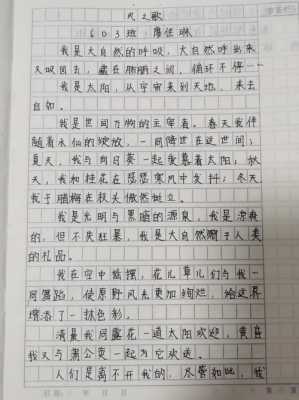 风之歌
603班 廖佳琳
我是大自然的呼吸，大自然呼出来
又吸回去，藏在肺腑之间，循环不停……
我是太阳，从宇宙来到天地，来去
自如。
我是世间万物的主宰者。春天我伴
随着水仙的绽放，一同降世在这世间；
夏天，我与向日葵一起仰慕着太阳；秋
天，我和桂花在瑟瑟寒风中发抖；冬天
我于腊梅在枝头傲然挺立。
我是光明与黑暗的源泉，我是凉爽
的，但不失狂暴，我是大自然赐于人类
的礼品。
我在空中摇摆，花儿草儿们与我一
同舞蹈，使原野风光更加绚烂，给这界
增添了一抹色彩。
清晨我同露花一道太阳欢迎，黄昏
我又与蒲公英一起为它欢送。
人们是离不开我的，尽管如此，我